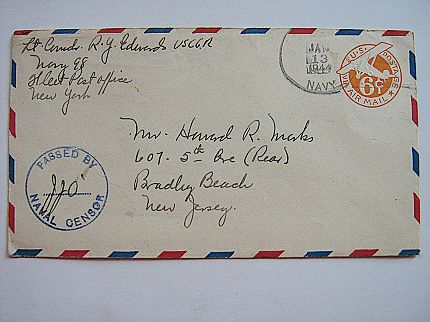 Lt Comdr. R. Y. Edwards USCGR
Navy 98
Fleet Post Office
New York
JAN
13
1944
NAVY
U.S. POSTAGE
6¢
VIA AIR MAIL
Mr. Howard R. Marks
607- 5th Ave (Rear)
Bradley Beach
New Jersey.
PASSED BY
NAVAL CENSOR